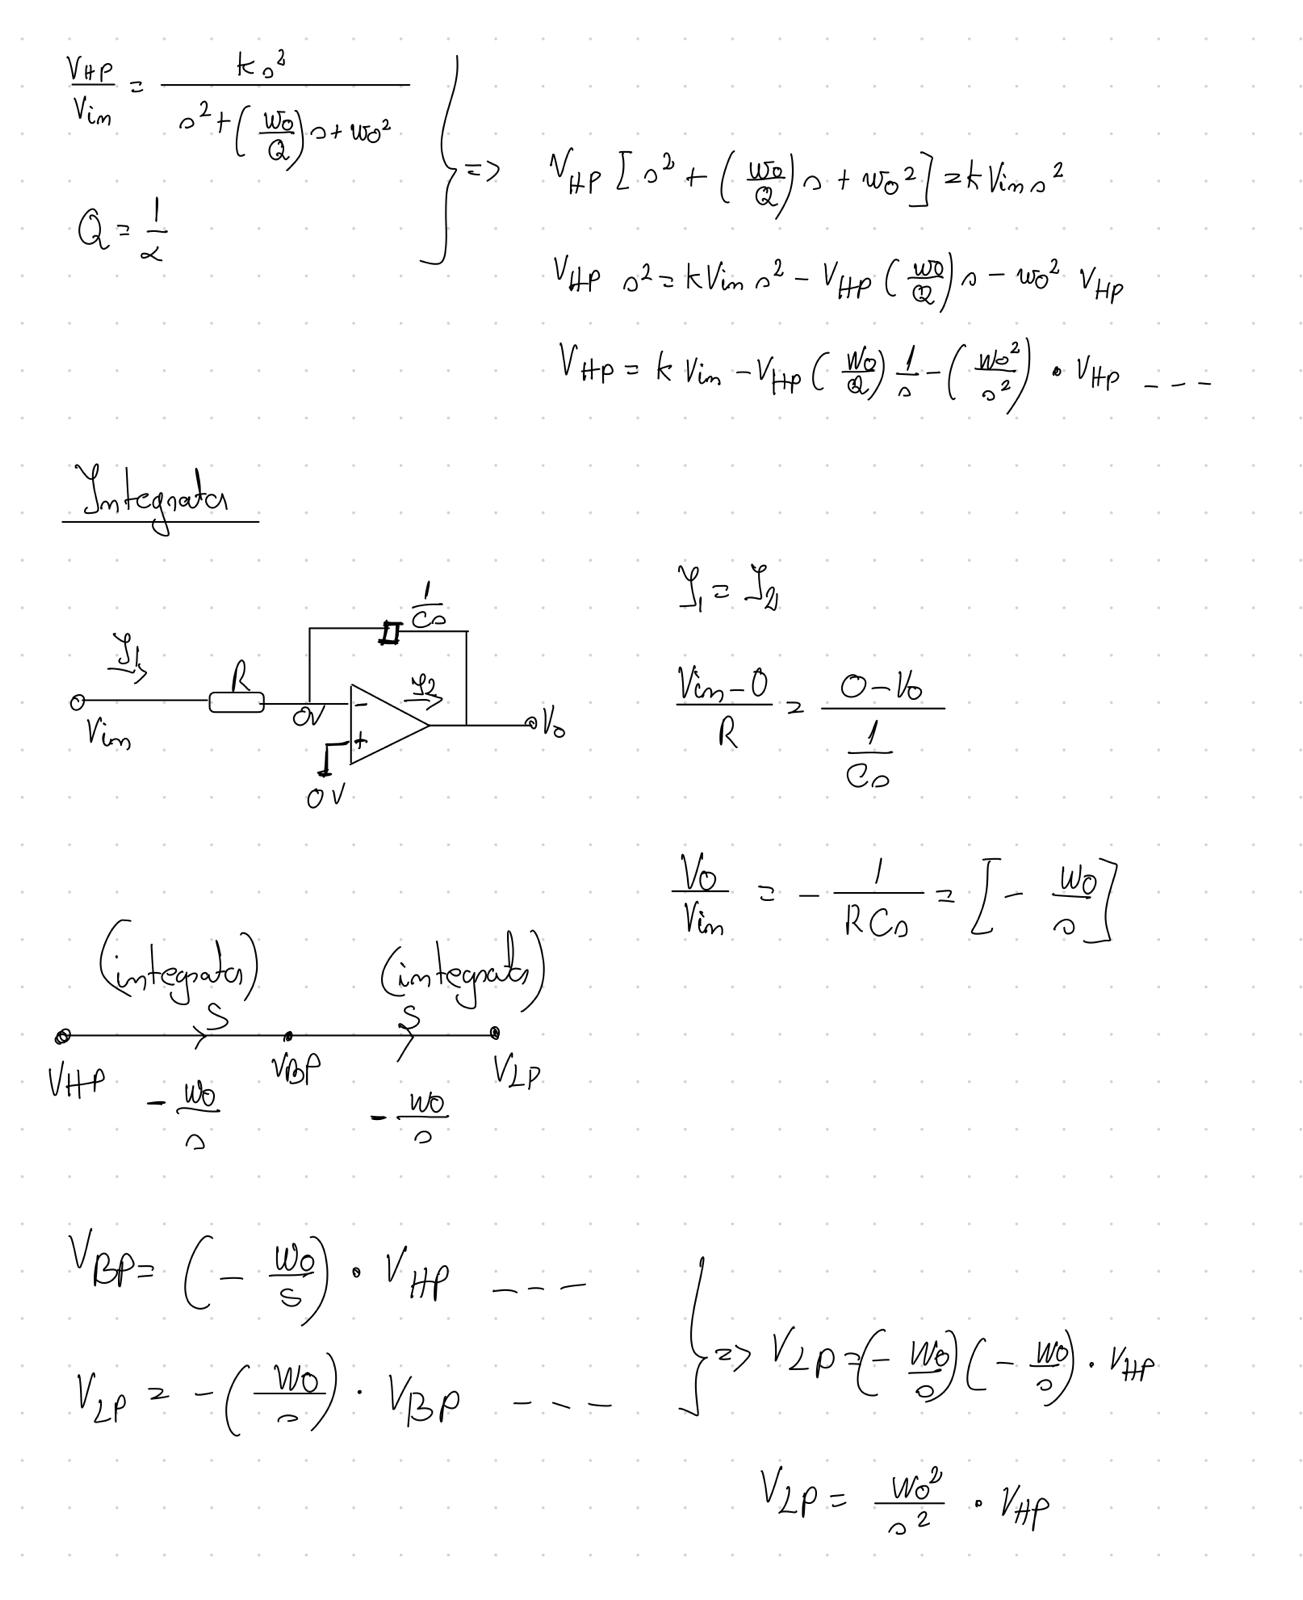 V_HP/V_in = k s² / (s² + (ω₀/Q) s + ω₀²)
Q = 1/α
=> V_HP [s² + (ω₀/Q) s + ω₀²] = k V_in s²
V_HP s² = k V_in s² - V_HP (ω₀/Q) s - ω₀² V_HP
V_HP = k V_in - V_HP (ω₀/Q) 1/s - (ω₀²/s²) · V_HP ---
Integrator
1/Cs
I₁
R
I₂
V_in
0V
-
+
V₀
0V
I₁ = I₂
(V_in - 0)/R = (0 - V₀)/(1/Cs)
V₀/V_in = - 1/(RCs) = [- ω₀/s]
(integrator) (integrator)
S S
V_HP V_BP V_LP
- ω₀/s - ω₀/s
V_BP = (- ω₀/s) · V_HP ---
V_LP = -(ω₀/s) · V_BP ---
=> V_LP = (- ω₀/s)(- ω₀/s) · V_HP
V_LP = ω₀²/s² · V_HP